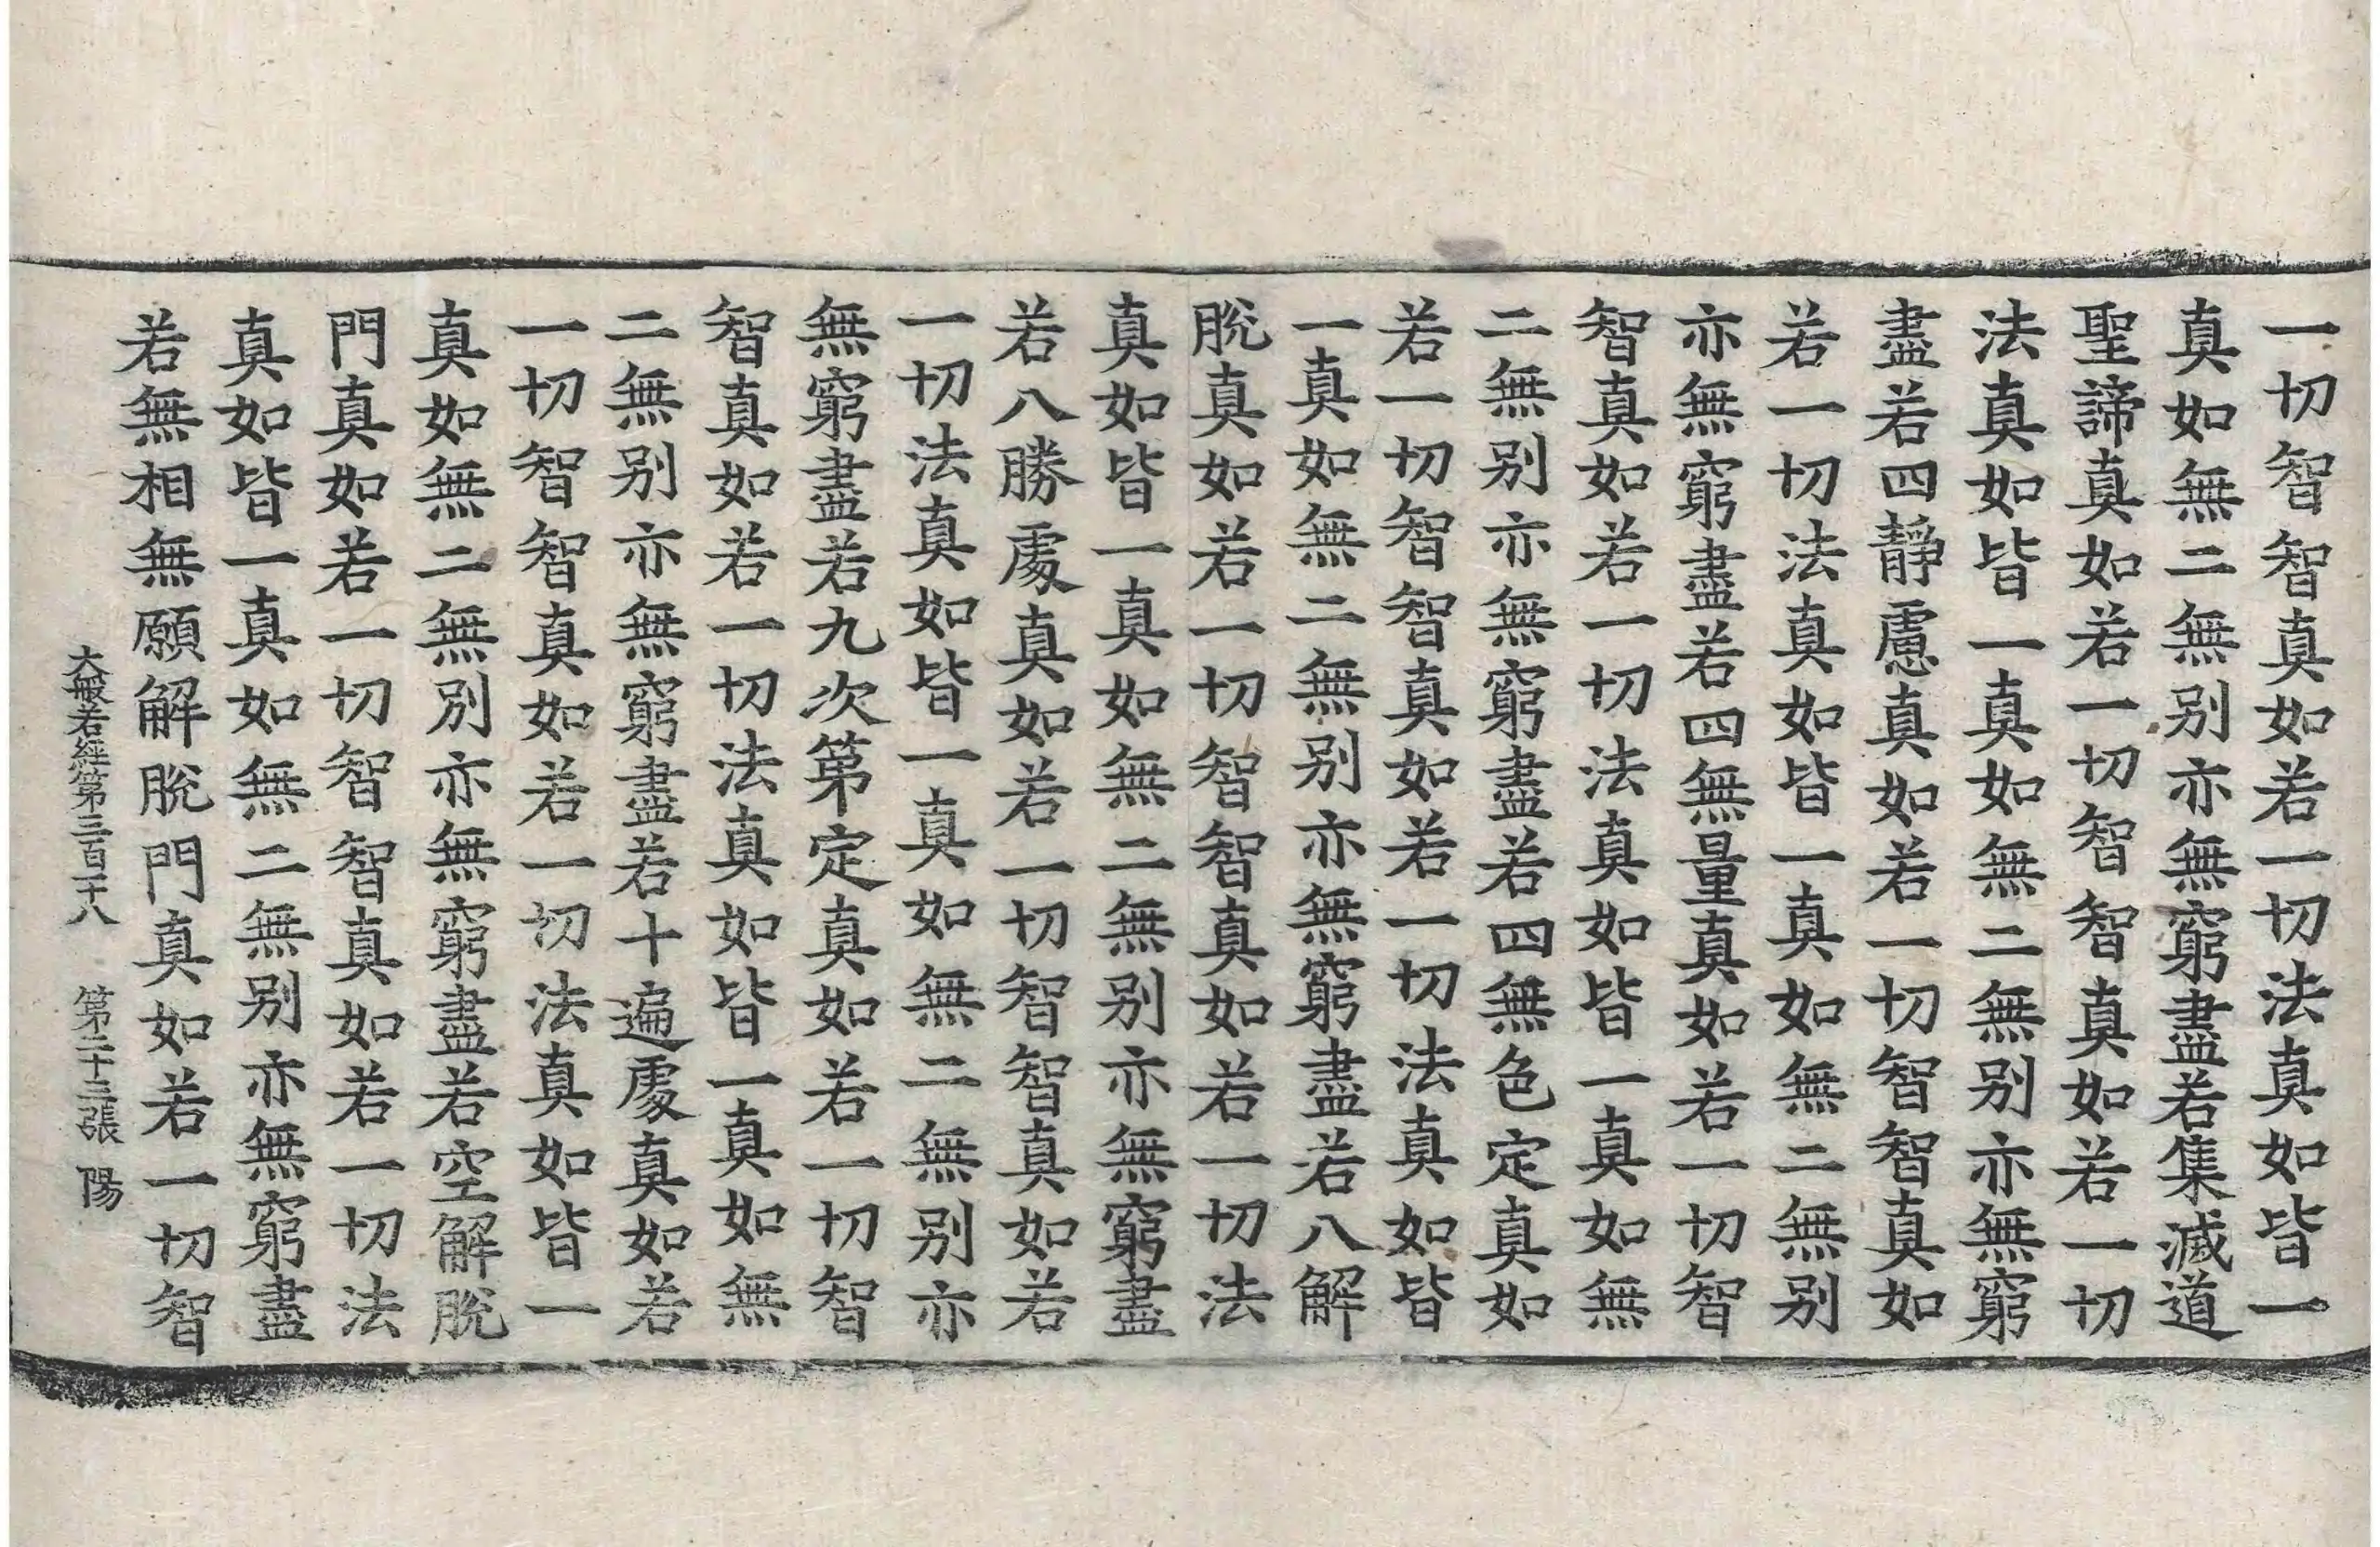 一切智智真如若一切法真如皆一
真如無二無別亦無窮盡若集滅道
聖諦真如若一切智智真如若一切
法真如皆一真如無二無別亦無窮
盡若四靜慮真如若一切智智真如
若一切法真如皆一真如無二無別
亦無窮盡若四無量真如若一切智
智真如若一切法真如皆一真如無
二無別亦無窮盡若四無色定真如
若一切智智真如若一切法真如皆
一真如無二無別亦無窮盡若八解
脫真如若一切智智真如若一切法
真如皆一真如無二無別亦無窮盡
若八勝處真如若一切智智真如若
一切法真如皆一真如無二無別亦
無窮盡若九次第定真如若一切智
智真如若一切法真如皆一真如無
二無別亦無窮盡若十遍處真如若
一切智智真如若一切法真如皆一
真如無二無別亦無窮盡若空解脫
門真如若一切智智真如若一切法
真如皆一真如無二無別亦無窮盡
若無相無願解脫門真如若一切智
大般若經第三百二十八　第二十三張　陽